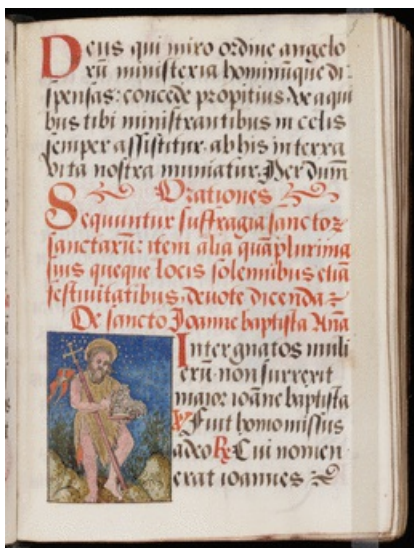 Deus qui miro ordine angelo
rũ ministeria hominũque di
spensas: concede propitius. vt a qui
bus tibi ministrantibus in celis
semper assistitur. ab his in terra
vita nostra muniatur. Per dum
Orationes
Sequuntur suffragia sanctoꝝ
sanctarũ: item alia quã plurima
suis queque locis solennibus etiã
festiuitatibus. deuote dicenda
De sancto Joanne baptista Aña
Inter gnatos muli
erũ. non surrexit
maior ioãne baptista
℣ Fuit homo missus
a deo ℟ Cui nomen
erat ioannes